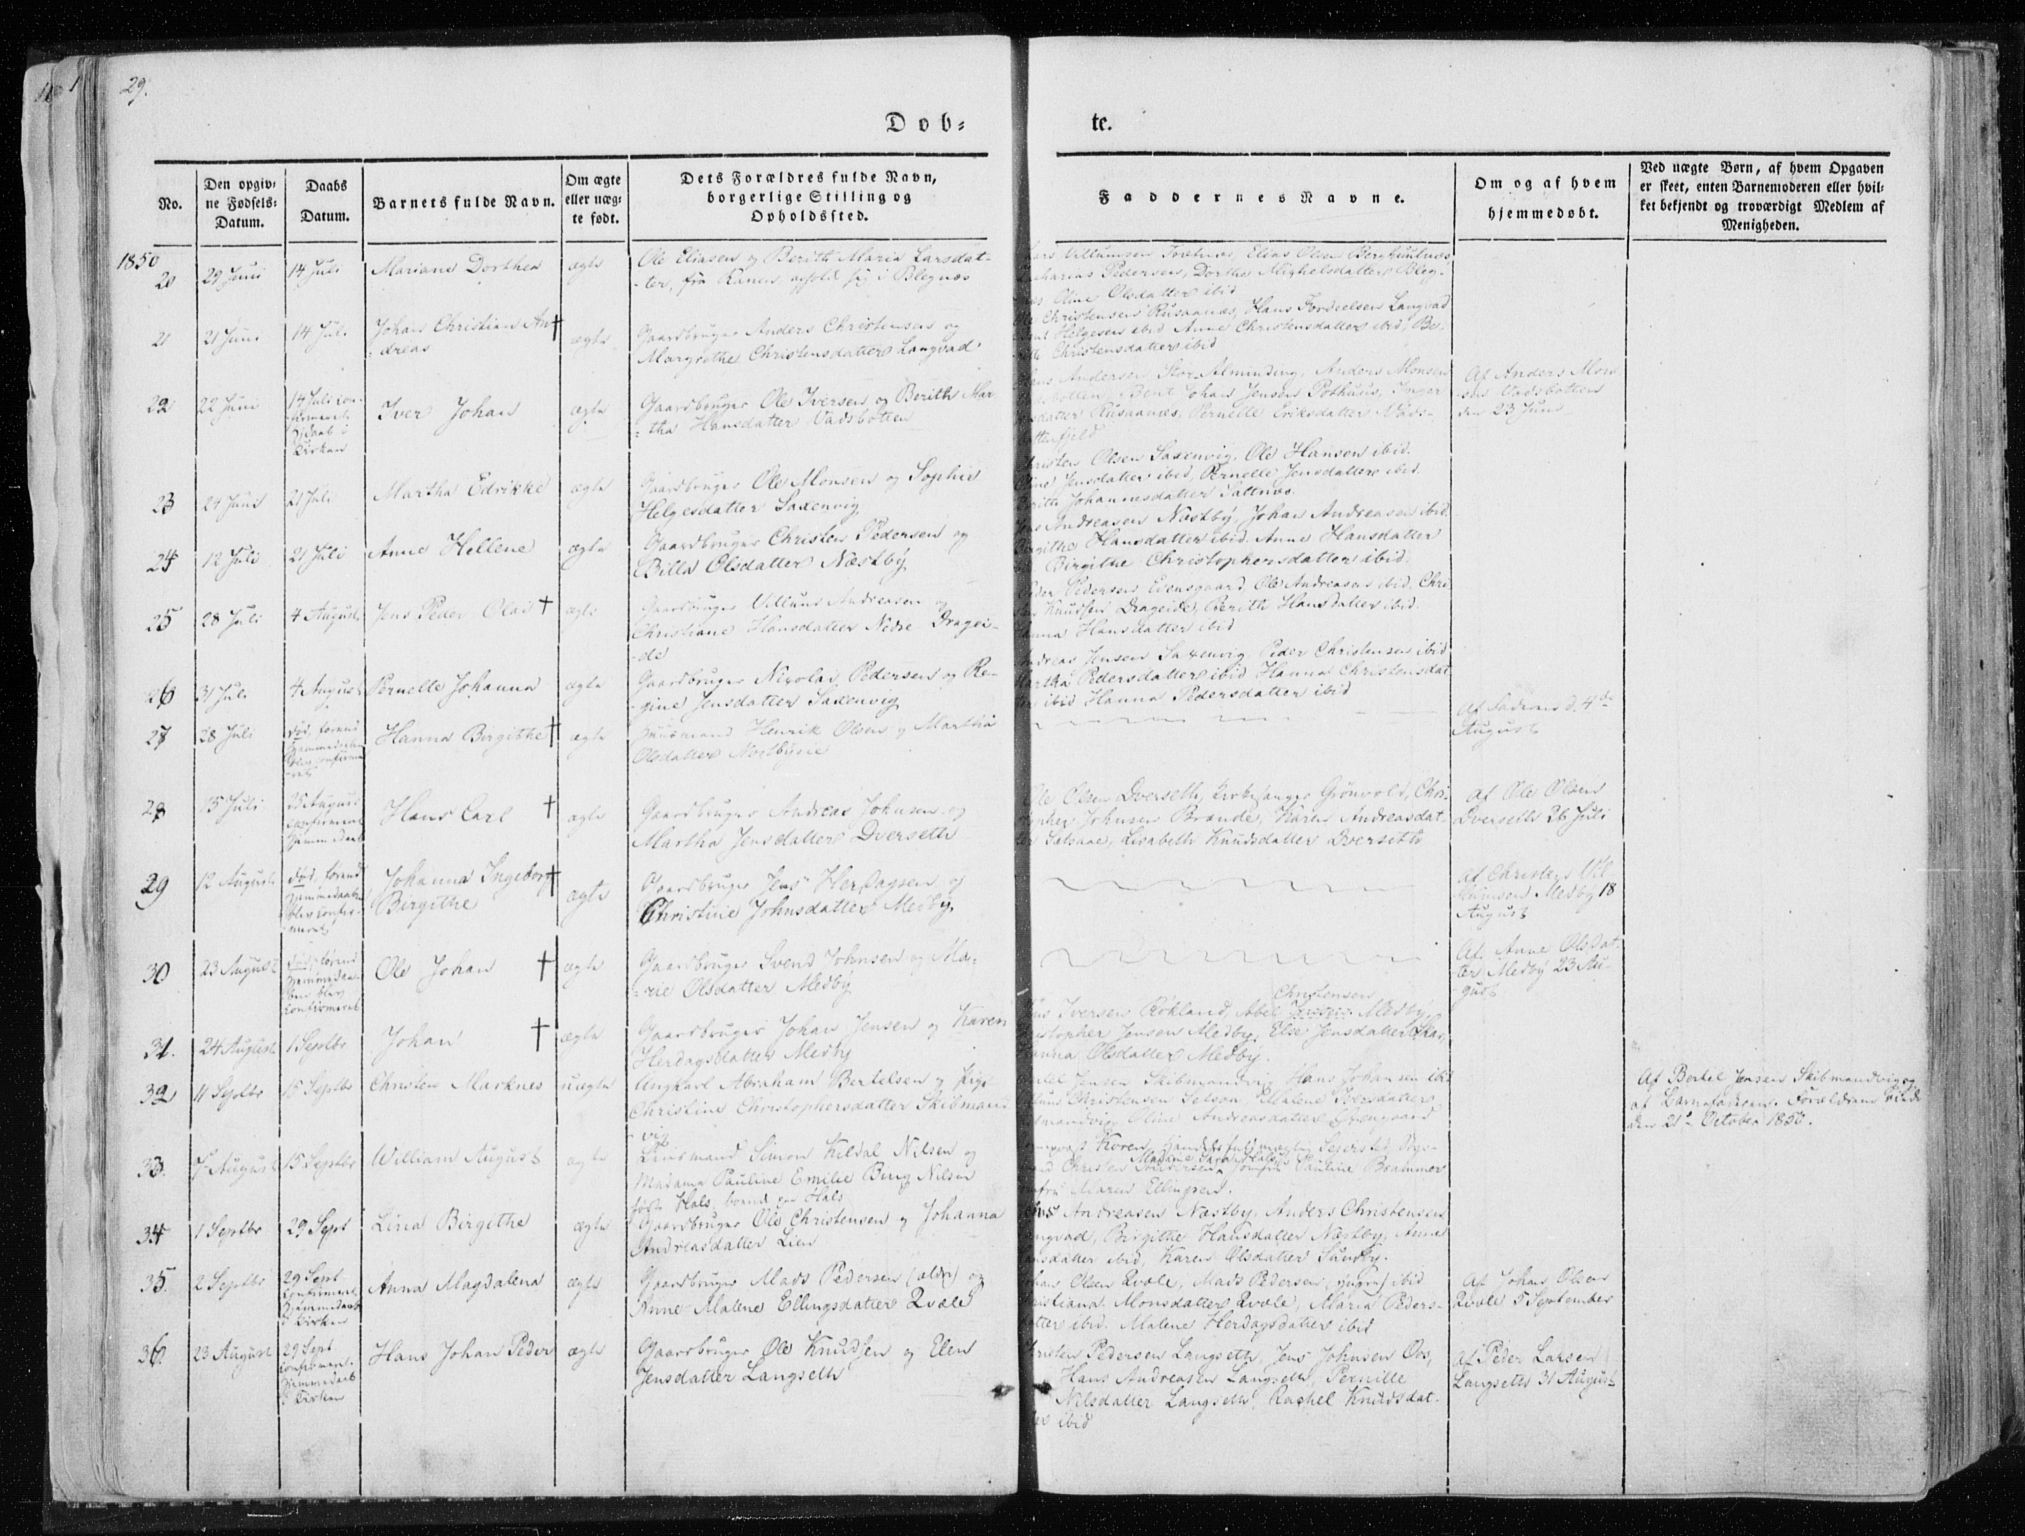 29.
Døb-
te.
No.
Den opgiv-
ne Fødsels-
Datum.
Daabs
Datum.
Barnets fulde Navn.
Om ægte
eller uæg-
te født.
Dets Forældres fulde Navn,
borgerlige Stilling og
Opholdssted.
Faddernes Navne.
Om og af hvem
hjemmedøbt.
Ved uægte Børn, af hvem Opgaven
er skeet, enten Barnemoderen eller hvil-
ket bekjendt og troværdigt Medlem af
Menigheden.
1850
20 29 Juni 14 Juli Mariane Dorthea ægte
Ole Eliasen og Berith Maria Larsdat-
-ter, fra Ranen ophold sig i Blegnæs
Villumsen Elias Olsen
Pedersen, Dorthe Mighelsdatter
Oline Olsdatter ibid
21 21 Juni 14 Jul. Johan Christian An †
-dreas
ægte
Gaardbruger Anders Christensen og
Margrethe Christensdatter Langvad
Christensen Rusaanæs, Hans Langvad
Helgesen ibid Anne Christensdatter ibid, Be-
Christensdatter ibid
22 22 Juni 14 Juli con-
firmeret
Hj.daab i
Kirken
Iver Johan ægte
Gaardbruger Ole Iversen og Berith Mar
-tha Hansdatter Vadsbotten
Andersen Stor Alminding, Anders Monsen
Bent Johan Jensen Pothuus, Inger
Rusaanæs, Pernelle Eriksdatter
Af Anders Mon
-sen Vadsbotten
den 23 Juni
23 24 Juni 21 Juli Martha Edrikke ægte
Gaardbruger Ole Monsen og Sophie
Helgesdatter Saxenvig
Christen Olsen Saxenvig, Ole Hansen ibid.
Jensdatter ibid, Pernelle Jensdatter ibid.
Berith Johannesdatter Saltnæs.
24 12 Juli 21 Juli Anne Hellene ægte
Gaardbruger Christen Pedersen og
Billa Olsdatter Næstby
Andreasen Næstby, Johan Andreasen ibid
Birgithe Hansdatter ibid. Anne Hansdatter
Birgithe Christophersdatter ibid.
25 28 Juli 4 August Jens Peder Olai † ægte
Gaardbruger Villum Andreasen og
Christiane Hansdatter Nedre Dragei-
-de
Peder Pedersen Evensgaard, Ole Andreasen ibid. Chri
Knudsen Drageide, Berith Hansdatter ibid.
Hanna Hansdatter ibid
26 31 Jul. 4 August Pernelle Johanna ægte
Gaardbruger Nicolai Pedersen og Re-
-gine Jensdatter Saxenvig
Andreas Jensen Saxenvig, Peder Christensen ibid
Martha Pedersdatter ibid Hanna Christensdat
ibid Hanna Pedersdatter ibid
27 28 Juli død, førend
hjemmedaaben
blev confirme
-ret
Hanna Birgithe † ægte
Huusmand Henrik Olsen og Martha
Olsdatter Næstbyeie
Af Faderen d. 4de
August
28 15 Juli 25 August
confirmeret
hjemmedaab
Hans Carl † ægte
Gaardbruger Andreas Johnsen og
Martha Jensdatter Dverseth
Ole Olsen Dverseth, Kirkesanger Grönvold, Chri-
Johnsen Brande, Karen Andreasdat-
Saltaae, Lisabeth Knudsdatter Dverseth
Af Ole Olsen
Dverseth 26 Juli
29 12 August død, førend
hjemmedaaben
blev confir-
meret
Johanna Ingeborg †
Birgithe
ægte
Gaardbruger Jens Herdagsen og
Christine Johnsdatter Medby
Af Christen Vil-
-lumsen Medby 18
August
30 23 August død, førend
hjemmedaa-
ben blev
confirmeret
Ole Johan † ægte
Gaardbruger Svend Johnsen og Ma-
-rie Olsdatter Medby
Af Anne Olsdat
ter Medby 23 Au-
gust
31. 24 August 1 Septbr Johan † ægte
Gaardbruger Johan Jensen og Karen
Herdagsdatter Medby
Christensen
Iversen Rökland, Abel Medby,
Christopher Jensen Medby, Else Jensdatter
Hanna Olsdatter Medby.
32 11 Septbr 15 Septbr Christen Marknes uægte
Ungkarl Abraham Bertelsen og Pige
Christine Christophersdatter Skibmand
vig
Jensen Skibmandvig, Hans Johansen ibid
Christensen Setsaa,
Oline Andreasdatter Evensgaard
Af Bertel Jensen Skibmandvig og
af Barnefaderen. Forældrene
den 21de October 1850.
33. 7 August 15 Septbr William August ægte
Lensmand Simon Kildal Nilsen og
Madame Pauline Emilie Bing Nilsen
født Hals, boende paa Hals
Koren,
Christen Pauline Brammer
Maren Ellingsen.
34 1 Septbr 29 Sept Lina Birgithe ægte
Gaardbruger Ole Christensen og Johanna
Andreasdatter Lien
Andreasen Næstby, Anders Christensen
Langvad, Birgithe Hansdatter Næstby, Anne
ibid, Karen Olsdatter Sundby.
35. 2 Septbr 29 Sept
Confirmeret
Hjemmedaab
i Kirken
Anna Magdalena ægte
Gaardbruger Mads Pedersen (ældre) og
Anne Malene Ellingsdatter Qvale
Johan Olsen Qvale, Mads Pedersen (yngre) ibid
Christiana Monsdatter Qvale, Maria Peders-
datter ibid. Malene Herdagsdatter ibid
Af Johan Olsen
Qvale 5 September
36 23 August 29 Sept
confirmeret
Hjemmedaab
i Kirken
Hans Johan Peder ægte
Gaardbruger Ole Knudsen og Elen
Jensdatter Langseth
Christen Pedersen Langseth, Jens Johnsen Os,
Hans Andreasen Langseth, Pernille
Nilsdatter Langseth, Rachel Knudsdat-
ibid
Af Peder Larsen
Langseth 31 August